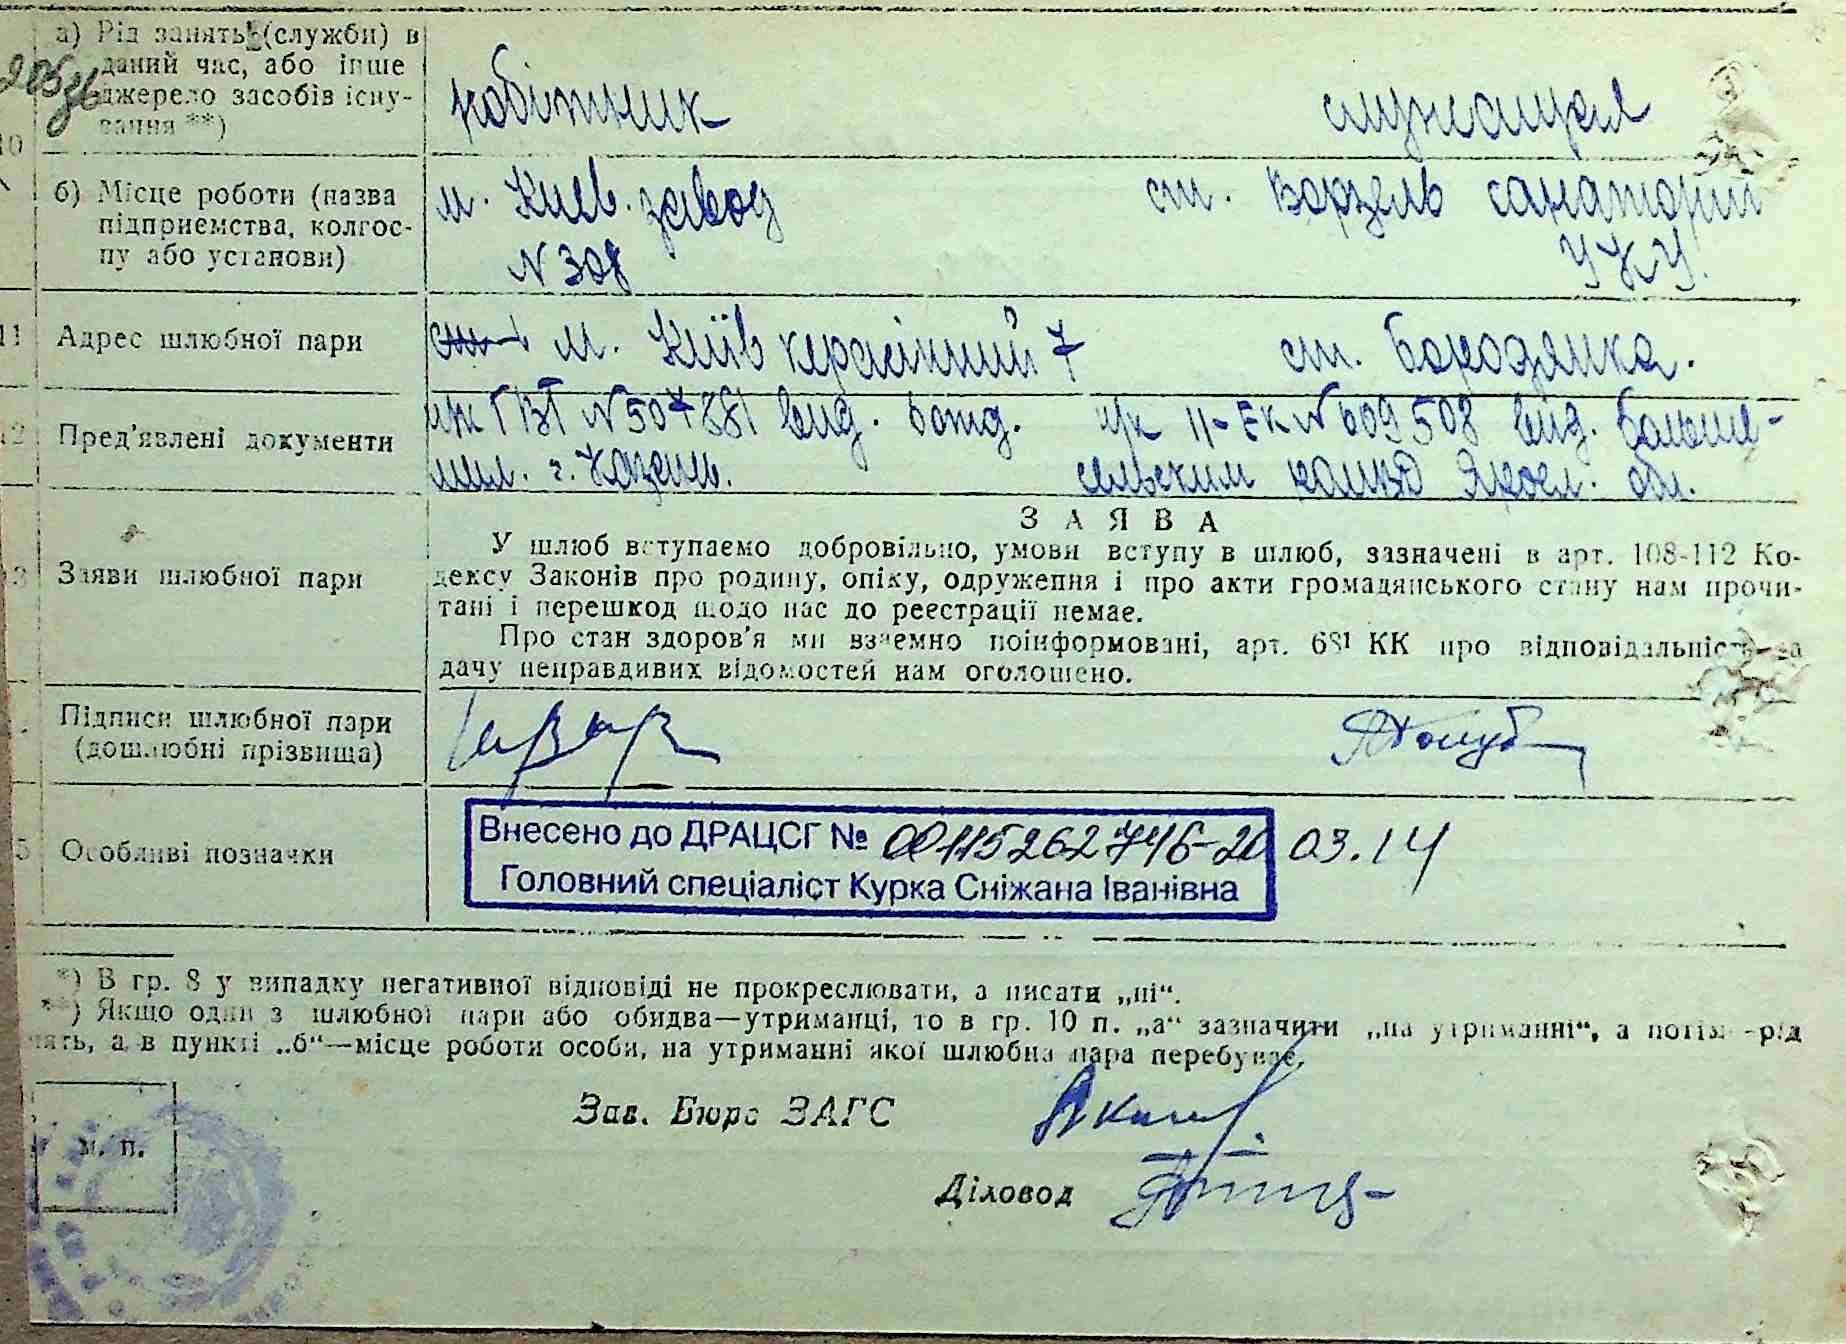 а) Рід занять (служби) в
даний час, або інше
джерело засобів існу-
вання **)
робітник
служащая
10
б) Місце роботи (назва
підприємства, колгос-
пу або установи)
м. Киев. завод
N 308
ст. Ворзель санаторий
УКУ.
11
Адрес шлюбної пари
м. Київ керасінний 7
ст. Бородянка.
12
Пред'явлені документи
N 507881 вид. 6 отд.
мил. г. Казань.
п/к II-ЕК N 609508 вид. Больше-
сельским Яросл. обл.
13
Заяви шлюбної пари
ЗАЯВА
У шлюб вступаємо добровільно, умови вступу в шлюб, зазначені в арт. 108-112 Ко-
дексу Законів про родину, опіку, одруження і про акти громадянського стану нам прочи-
тані і перешкод щодо нас до реєстрації немає.
Про стан здоров'я ми взаємно поінформовані, арт. 68¹ КК про відповідальність за
дачу неправдивих відомостей нам оголошено.
Підписи шлюбної пари
(дошлюбні прізвища)
5
Особливі позначки
Внесено до ДРАЦСГ № 00115262746-20 03.14
Головний спеціаліст Курка Сніжана Іванівна
*) В гр. 8 у випадку негативної відповіді не прокреслювати, а писати „ні“.
**) Якщо один з шлюбної пари або обидва—утриманці, то в гр. 10 п. „а“ зазначити „на утриманні“, а потім—рід
нять, а в пункті „б“—місце роботи особи, на утриманні якої шлюбна пара перебуває.
Зав. Бюро ЗАГС
м. п.
Діловод